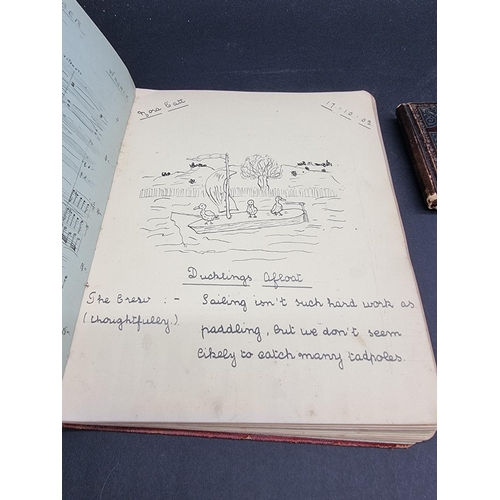 Nora Catt
17.10.02
Ducklings Afloat
The Crew :- Sailing isn't such hard work as
(thoughtfully.) paddling, but we don't seem
likely to catch many tadpoles.